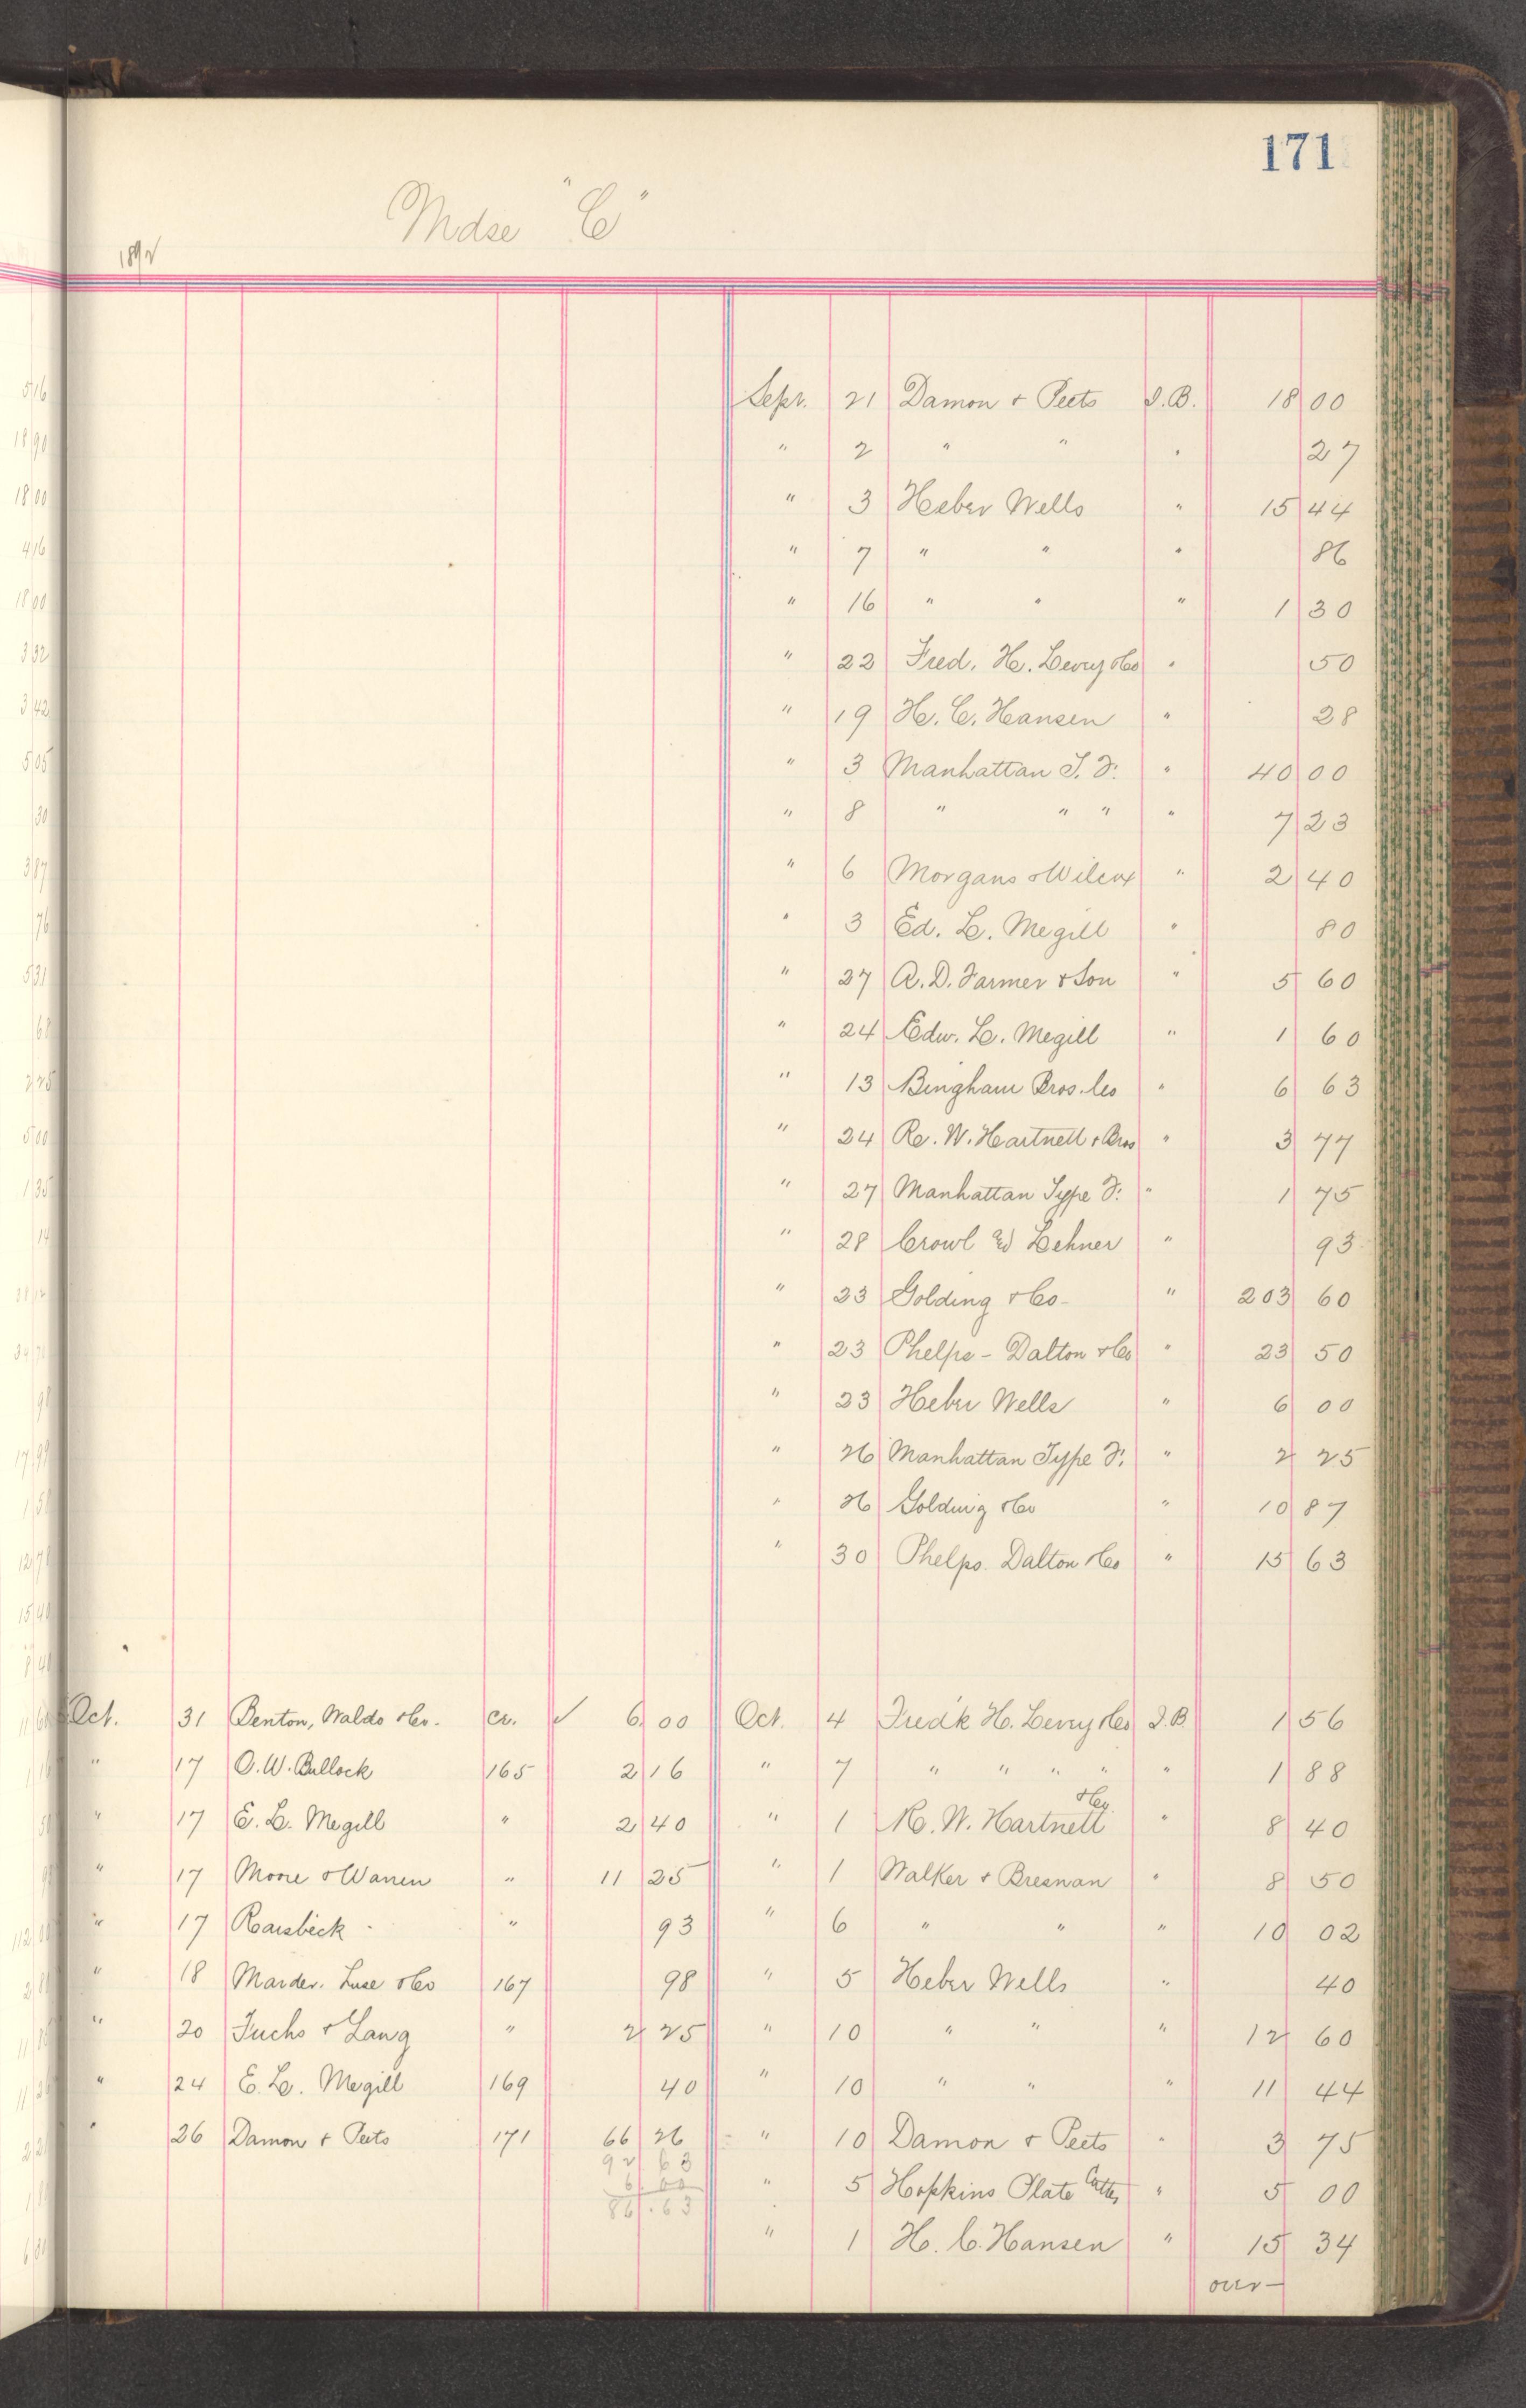 171
Mdse "C"
1892
Sept. 21 Damon & Peets I.B. 18 00
" 2 " " " 27
" 3 Heber Wells " 15 44
" 7 " " " 86
" 16 " " " 1 30
" 22 Fred. H. Levey & Co " 50
" 19 H. C. Hansen " 28
" 3 Manhattan T. F. " 40 00
" 8 " " " " 7 23
" 6 Morgans & Wilcox " 2 40
" 3 Ed. L. Megill " 80
" 27 A. D. Farmer & Son " 5 60
" 24 Edw. L. Megill " 1 60
" 13 Bingham Bros. Co " 6 63
" 24 R. W. Hartnett & Bros " 3 77
" 27 Manhattan Type F. " 1 75
" 28 Crowl & Lehner " 93
" 23 Golding & Co - " 203 60
" 23 Phelps - Dalton & Co " 23 50
" 23 Heber Wells " 6 00
" 26 Manhattan Type F. " 2 25
" 26 Golding & Co " 10 87
" 30 Phelps. Dalton & Co " 15 63
Oct. 31 Benton, Waldo & Co. cr. ✓ 6 00 Oct. 4 Fred'k H. Levey & Co I.B. 1 56
" 17 O. W. Bullock 165 2 16 " 7 " " " " " 1 88
" 17 E. L. Megill " 2 40 " 1 R. W. Hartnett & Co. " 8 40
" 17 Moore & Warren " 11 25 " 1 Walker & Bresnan " 8 50
" 17 Raisbeck - " 93 " 6 " " " 10 02
" 18 Marder. Luse & Co 167 98 " 5 Heber Wells " 40
" 20 Fuchs & Lang " 2 25 " 10 " " " 12 60
" 24 E. L. Megill 169 40 " 10 " " " 11 44
" 26 Damon & Peets 171 66 26 " 10 Damon & Peets " 3 75
92 63
6 00 " 5 Hopkins Plate " 5 00
86.63
" 1 H. C. Hansen " 15 34
over -